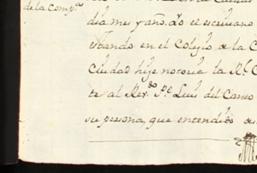 de la comp.ª
dia mes y año. d.ho el escribano
estando en el Colegio de la C
Ciudad hize notoria la R.l C
te al Rex.do P.e Luis del Canso
su persona que entendido de